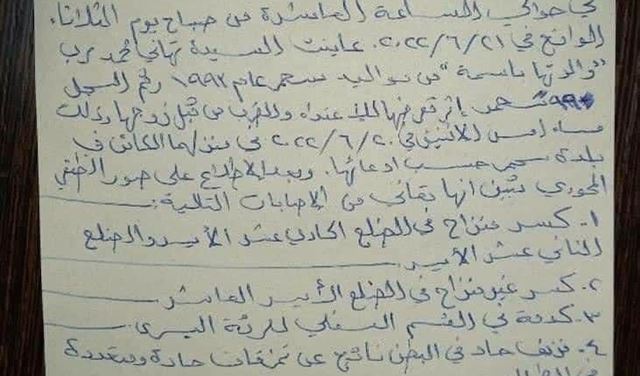 في حوالي الساعة العاشرة من صباح يوم الثلاثاء
الواقع في ٢٠٢٢/٦/٢١ عاينت السيدة تهاني محمد حرب
"والدتها باسمة" من مواليد سحمر عام ١٩٩٢ رقم السجل
سحمر إثر تعرضها للاعتداء والضرب من قبل زوجها وذلك
مساء أمس الاثنين في ٢٠٢٢/٦/٢٠ في منزلهما الكائن في
بلدة سحمر حسب ادعائها. وبعد الاطلاع على صور الطبقي
المحوري تبين انها تعاني من الإصابات التالية:
١- كسر منزاح في الضلع الحادي عشر الأيسر والضلع
الثاني عشر الأيسر
٢- كسر غير منزاح في الضلع الأيسر العاشر
٣- كدمة في القسم السفلي للرئة اليسرى
٤- نزف حاد في البطن ناتج عن تمزقات حادة ومتعددة
في الطحال